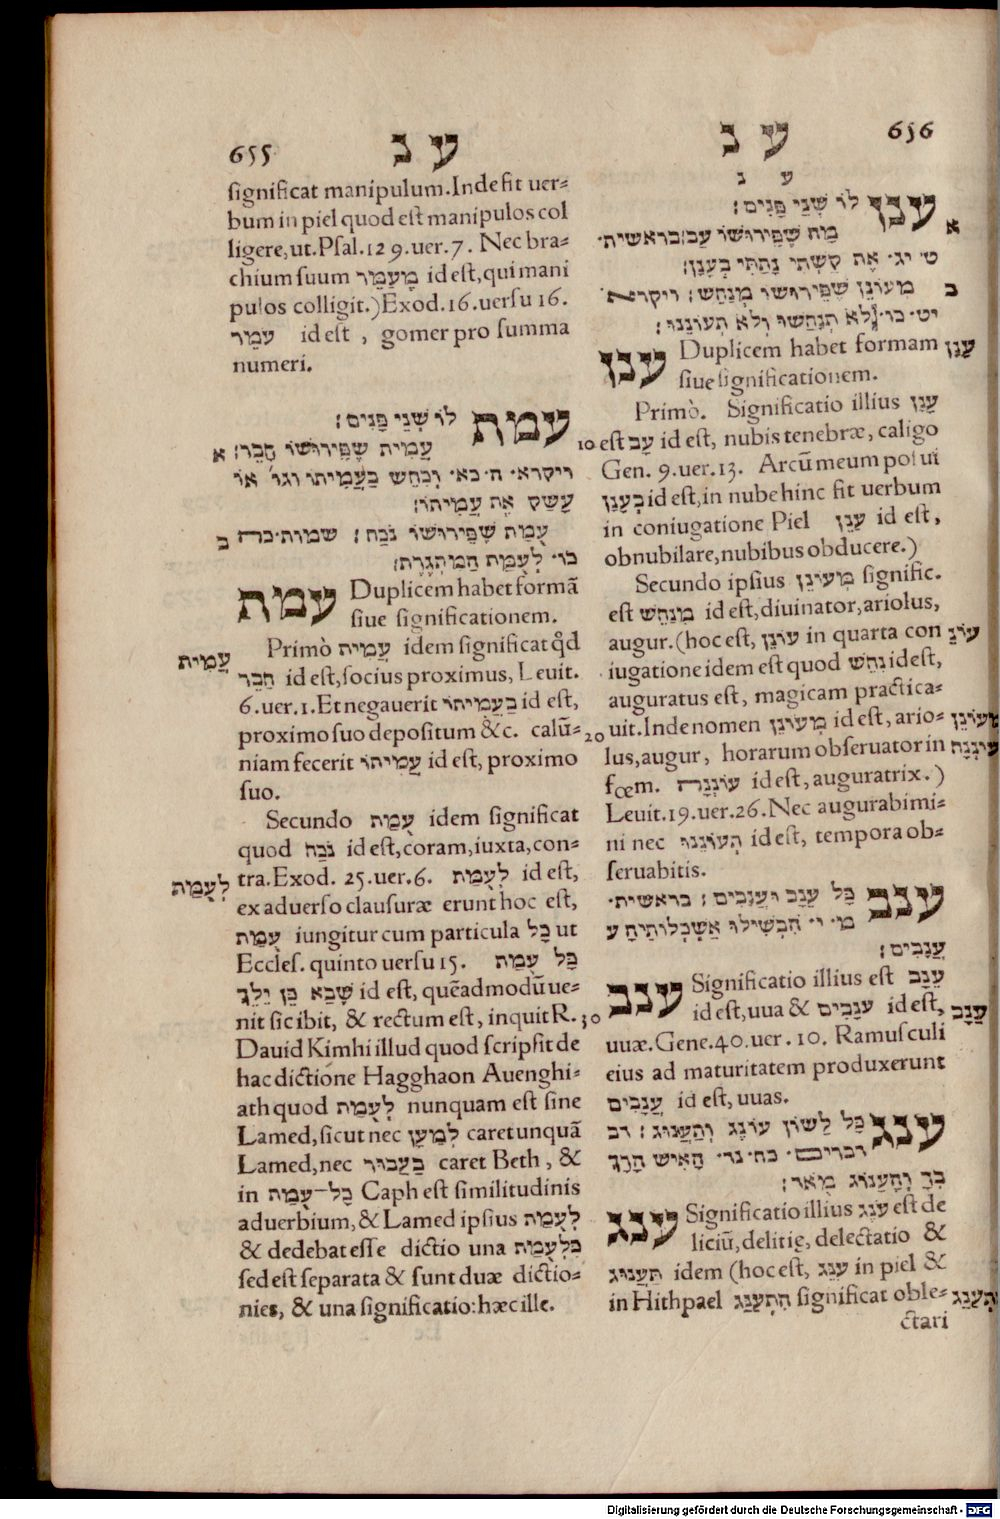 655
ע נ
significat manipulum. Inde fit uer=
bum in piel quod est manipulos col
ligere, ut. Psal. 129. uer. 7. Nec bra=
chium suum מְעַמֵּר id est, qui mani
pulos colligit.) Exod. 16. uersu 16.
עמֵר id est, gomer pro summa
numeri.
עמת לוֹ שְׁנֵי פָּנִים:
א עֲמִית שֶׁפֵּירוּשׁוֹ חָבֵר:
ויקרא· ה· כא· וְכִחֵשׁ בַּעֲמִיתוֹ וגו׳ אוֹ
עָשַׁק אֶת עֲמִיתוֹ:
ב עֻמַּת שֶׁפֵּירוּשׁוֹ נֹכַח: שמות· כה
כו· לְעֻמַּת הַמִּסְגֶּרֶת:
עמת Duplicem habet formã
siue significationem.
Primò עֲמִית idem significat qd
עֲמִית
חָבֵר id est, socius proximus, Leuit.
6. uer. 1. Et negauerit בַּעֲמִיתוֹ id est,
proximo suo depositum &c. calũ=
niam fecerit עֲמִיתוֹ id est, proximo
suo.
Secundo עֻמַּת idem significat
quod נֹכַח id est, coram, iuxta, con=
tra. Exod. 25. uer. 6. לְעֻמַּת id est,
לְעֻמַּת
ex aduerso clausuræ erunt hoc est,
עֻמַּת iungitur cum particula כָּל ut
Eccles. quinto uersu 15. כָּל עֻמַּת
שֶׁבָּא כֵּן יֵלֵךְ id est, quẽadmodũ ue=
nit sic ibit, & rectum est, inquit R.
Dauid Kimhi illud quod scripsit de
hac dictione Hagghaon Auenghi=
ath quod לְעֻמַּת nunquam est sine
Lamed, sicut nec לְמַעַן caret unquã
Lamed, nec בַּעֲבוּר caret Beth, &
in כָּל־עֻמַּת Caph est similitudinis
aduerbium, & Lamed ipsius לְעֻמַּת
& dedebat esse dictio una כִּלְעֻמַּת
sed est separata & sunt duæ dictio=
nies, & una significatio: hæc ille.
656
ע נ
ע נ
ענן לוֹ שְׁנֵי פָּנִים:
א מַה שֶׁפֵּירוּשׁוֹ עָב: בראשית·
ט· יג· אֶת קַשְׁתִּי נָתַתִּי בְּעָנָן:
ב מְעוֹנֵן שֶׁפֵּירוּשׁוֹ מְנַחֵשׁ: ויקרא
יט· כו· לֹא תְנַחֲשׁוּ וְלֹא תְעוֹנֵנוּ:
ענן Duplicem habet formam
עָנָן
siue significationem.
Primò. Significatio illius עָנָן
10 est עָב id est, nubis tenebræ, caligo
Gen. 9. uer. 13. Arcũ meum posui
בְּעָנָן id est, in nube hinc fit uerbum
in coniugatione Piel עִנֵּן id est,
obnubilare, nubibus obducere.)
Secundo ipsius מְעוֹנֵן signific.
est מְנַחֵשׁ id est, diuinator, ariolus,
augur. (hoc est, עוֹנֵן in quarta con
iugatione idem est quod נִחֵשׁ id est,
auguratus est, magicam practica=
20 uit. Inde nomen מְעוֹנֵן id est, ario=
מְעוֹנֵן
lus, augur, horarum obseruator in
fœm. עוֹנְנָה id est, auguratrix.)
Leuit. 19. uer. 26. Nec augurabimi=
ni nec תְּעוֹנֵנוּ id est, tempora ob=
seruabitis.
ענב כָּל עֵנָב וַעֲנָבִים: בראשית·
מ· י· הִבְשִׁילוּ אַשְׁכְּלוֹתֶיהָ ע
עֲנָבִים:
ענב Significatio illius est עֵנָב
id est, uua & עֲנָבִים id est,
עֵנָב
30 uuæ. Gene. 40. uer. 10. Ramusculi
eius ad maturitatem produxerunt
עֲנָבִים id est, uuas.
ענג כָּל לְשׁוֹן עוֹנֶג וְתַעֲנוּג: דב
דברים· כח· נד· הָאִישׁ הָרַךְ
בְּךָ וְהֶעָנוֹג מְאֹד:
ענג Significatio illius עֹנֶג est de
liciũ, delitię, delectatio &
תַּעֲנוּג idem (hoc est, עִנֵּג in piel &
in Hithpael הִתְעַנֵּג significat oble=
ctari
Digitalisierung gefördert durch die Deutsche Forschungsgemeinschaft - DFG